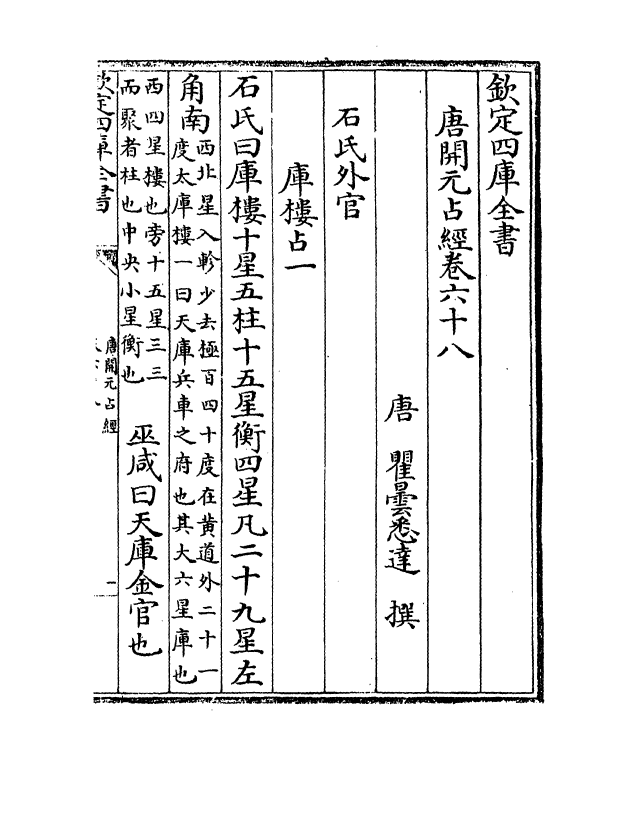 欽定四庫全書
唐開元占經卷六十八
唐 瞿曇悉達 撰
石氏外官
庫樓占一
石氏曰庫樓十星五柱十五星衡四星凡二十九星左
角南
西北星入軫少去極百四十度在黄道外二十一
度太庫樓一曰天庫兵車之府也其大六星庫也
西四星樓也旁十五星三三
而聚者柱也中央小星衡也
巫咸曰天庫金官也
欽定四庫全書
唐開元占經
一